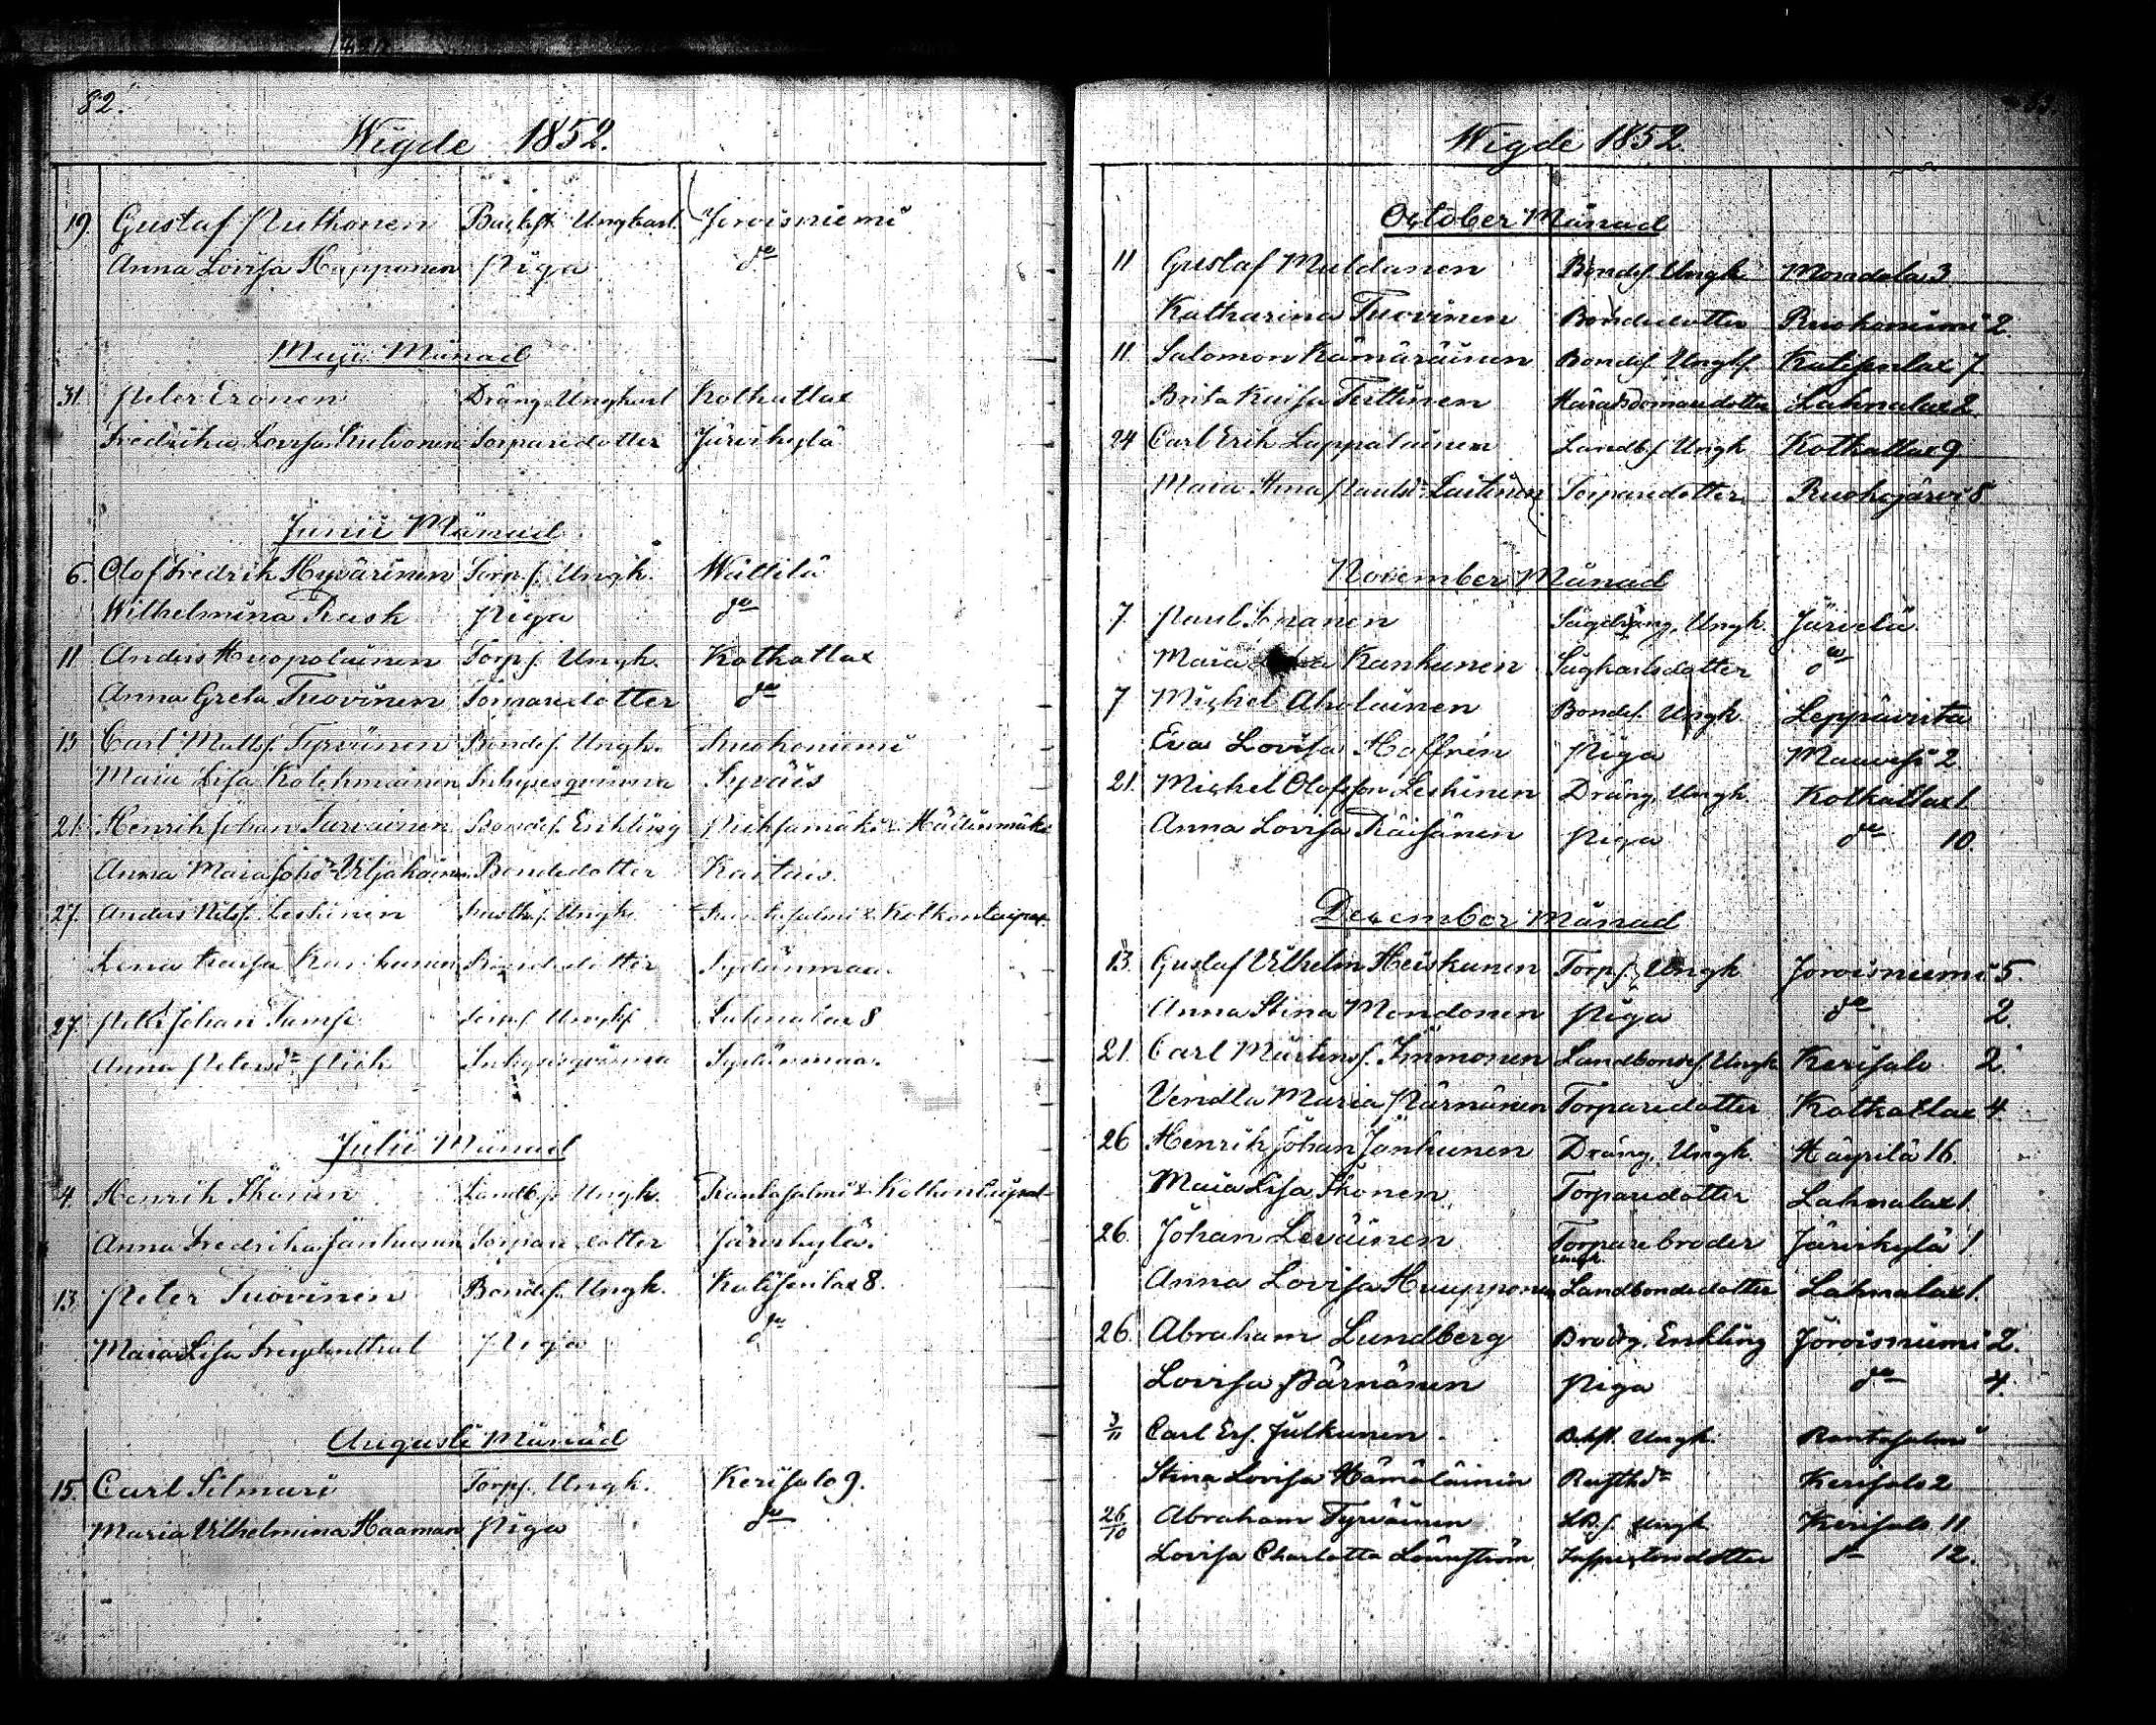 82.
Wigde 1852.
19. Gustaf Putkonen Backst. Ungkarl. Joroisniemi
Anna Lovisa Happonen Piga do
Maji Månad
31. Peter Eronen Dräng Ungkarl Kotkatlax
Fredrika Lovisa Torparedotter Järvikylä
Junii Månad
6. Olof Fredrik Hyvärinen Torp.s. Ungk. Wättilä
Wilhelmina Rask Piga do
11 Anders Huopolainen Torps. Ungk. Kotkatlax
Anna Greta Tuovinen Torparedotter do
13 Carl Matts. Tyrväinen Bondes. Ungk. Ruokoniemi
Maia Lisa Kolehmainen Inhysesqvinna Syväis
21. Henrik Johan Tarvainen Bondes. Enkling Pieksämäki &
Anna Maia Bondedotter Kaitais.
27. Anders Nilss. Leskinen Ungk. Rantasalmi & Kolkontaipal
Lena Kaisa Karhunen Bondedotter Sydänmaa.
27. Johan Torps. Ungk. Lahnalax 8
Anna Petersdr Inhysesqvinna Sydänmaa.
Julii Månad
4. Henrik Ikonen Landb.s. Ungk. Rantasalmi & Kolkontaipal
Anna Fredrika Janhunen Torparedotter Järvikylä.
13. Peter Tuovinen Bondes. Ungk. Katisenlax 8.
Maia Lisa Freydenthal Piga do
Augusti Månad
15. Carl Silmari Torps. Ungk. Kerisalo 9.
Maria Vilhelmina Haaman Piga do
Wigde 1852.
October Månad
11 Gustaf Muldanen Bondes. Ungk. Mondola 3
Katharina Tuovinen Bondedotter Ruokoniemi 2.
11 Salomon Kämäräinen Bondes. Ungk. Katisenlax 7
Brita Kaisa Teittinen Häradsdomaredotter Lahnalax 2.
24 Carl Erik Lappalainen Landb.s Ungk Kotkatlax 9
Maia Stina Paulsdr Laitinen Torparedotter Ruokojärvi 8
November Månad
7. Paul Soranen Sågdräng, Ungk. Järvelä.
Maia Kankunen Sågkarlsdotter do
7 Michel Aholainen Bondes. Ungk Leppävirta
Eva Lovisa Hoffrén Piga Maavesi 2
21. Michel Olofsson Leskinen Dräng, Ungk Kotkatlax 1.
Anna Lovisa Räisänen Piga do 10.
December Månad
13. Gustaf Vilhelm Heiskanen Torps. Ungk Joroisniemi 5.
Anna Stina Mondonen Piga do 2.
21. Carl Mårtens. Immonen Landbondes. Ungk Kerisalo 2.
Vendla Maria Pärnänen Torparedotter Kotkatlax 4
26 Henrik Johan Janhunen Dräng, Ungk. Häyrilä 16.
Maia Lisa Ikonen Torparedotter Lahnalax 1.
26. Johan Leväinen Torpare broder Ungk. Järvikylä 1
Anna Lovisa Huupponen Landbondedotter Lahnalax 1.
26. Abraham Lundberg Dräng, Enkling Joroisniemi 2.
Lovisa Pärnänen Piga do 4.
3/11 Carl Ers. Julkunen Bckst. Ungk. Rantasalmi
Stina Lovisa Hämäläinen Rusthdr Kerisalo 2
26/10 Abraham Tyrväinen LB.s. Ungk Kerisalo 11
Lovisa Charlotta Lönnström Inspectorsdotter do 12.